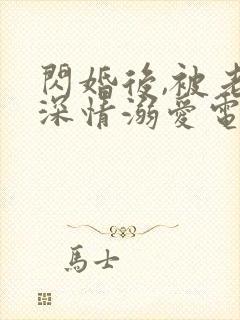 閃婚後,被老
深情溺愛電
馬士